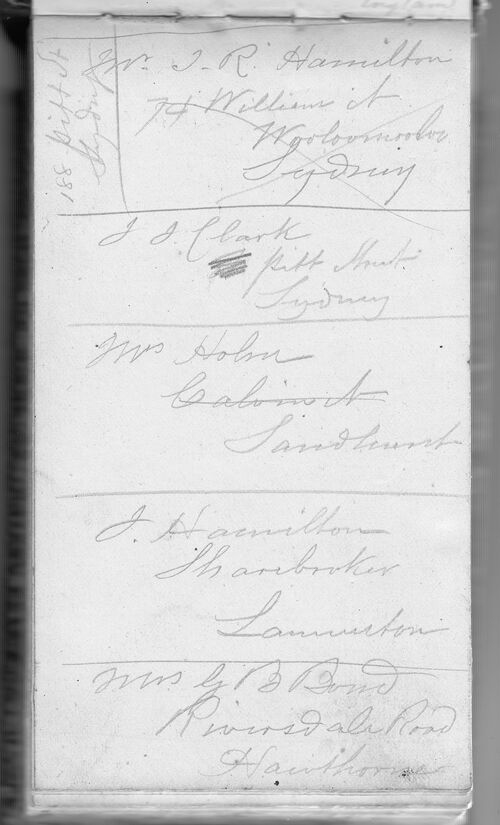 188 Pitt St
Sydney
Mr. J. R. Hamilton
74 William St
Wooloomooloo
Sydney
J. J. Clark
Pitt Street
Sydney
Mrs Holm
St
Sandhurst
J. Hamilton
Sharebroker
Launceston
Mrs G B Bond
Riversdale Road
Hawthorne